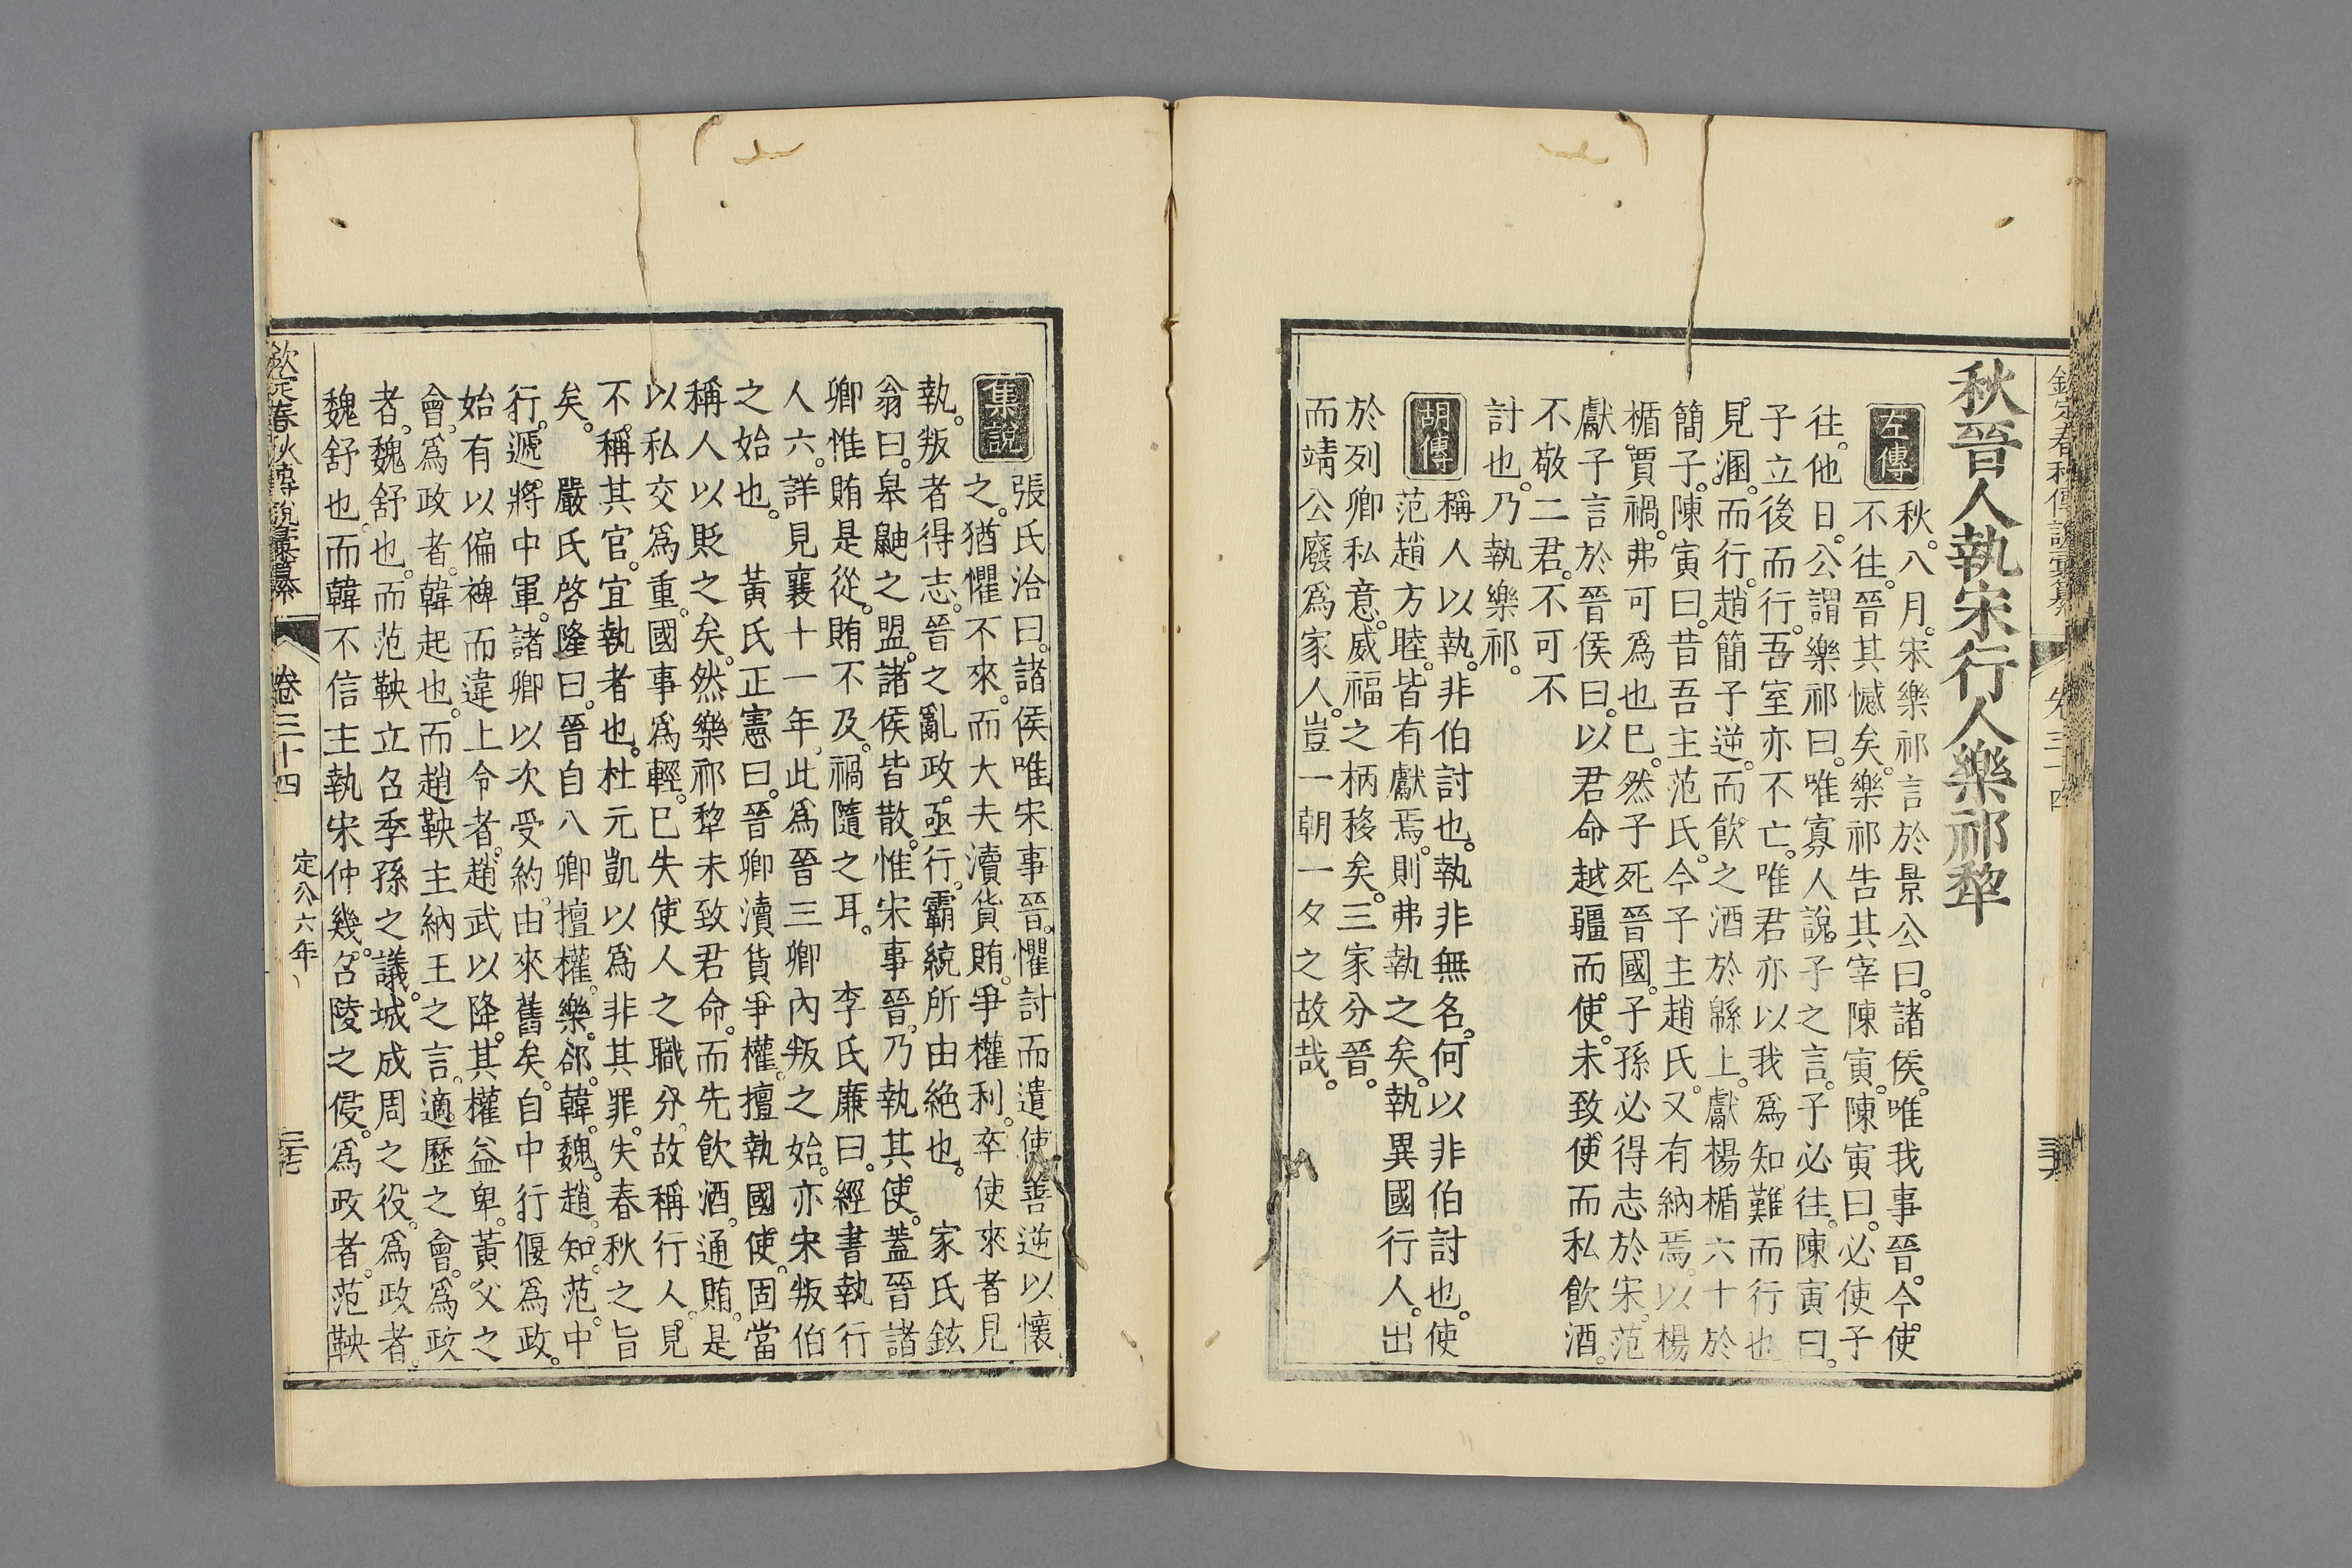 欽定春秋傳說彙纂 卷三十四
秋晉人執宋行人樂祁犂
左傳 秋。八月。宋樂祁言於景公曰。諸侯。唯我事晉。今使
不往。晉其憾矣。樂祁告其宰陳寅。陳寅曰。必使子
往。他日。公謂樂祁曰。唯寡人說。子之言。子必往。陳寅曰。
子立後而行。吾室亦不亡。唯君亦以我爲知難而行也
見溷。而行。趙簡子逆。而飮之酒於緜上。獻楊楯六十於
簡子。陳寅曰。昔吾主范氏。今子主趙氏。又有納焉。以楊
楯。賈禍。弗可爲也已。然子死晉國。子孫必得志於宋。范
獻子言於晉侯曰。以君命越疆而使。未致使而私飮酒。
不敬二君。不可不
討也。乃執樂祁。
胡傳 稱人以執。非伯討也。執非無名。何以非伯討也。使
范趙方睦。皆有獻焉。則弗執之矣。執異國行人。出
於列卿私意。威福之柄移矣。三家分晉。
而靖公廢爲家人。豈一朝一夕之故哉。
集說 張氏洽曰。諸侯唯宋事晉。懼討而遣使。善逆以懷
之。猶懼不來。而大夫瀆貨賄。爭權利。卒使來者見
執。叛者得志。晉之亂政。亟行。霸統所由絶也。 家氏鉉
翁曰。臯鼬之盟。諸侯皆散。惟宋事晉。乃執其使。蓋晉諸
卿惟賄是從。賄不及。禍隨之耳。 李氏廉曰。經書執行
人六。詳見襄十一年。此爲晉三卿內叛之始。亦宋叛伯
之始也。 黃氏正憲曰。晉卿瀆貨爭權。擅執國使。固當
稱人以貶之矣。然樂祁犂未致君命。而先飮酒。通賄。是
以私交爲重。國事爲輕。已失使人之職分。故稱行人。見
不稱其官。宜執者也。杜元凱以爲非其罪。失春秋之旨
矣。 嚴氏啓隆曰。晉自八卿擅權。欒。郤。韓。魏。趙。知。范。中
行。遞將中軍。諸卿以次受約。由來舊矣。自中行偃爲政。
始有以偏裨而違上令者。趙武以降。其權益卑。黃父之
會。爲政者。韓起也。而趙鞅主納王之言。適歷之會。爲政
者。魏舒也。而范鞅立召季孫之議。城成周之役。爲政者。
魏舒也。而韓不信主執宋仲幾。召陵之侵。爲政者。范鞅
欽定春秋傳說彙纂 卷三十四 定公六年